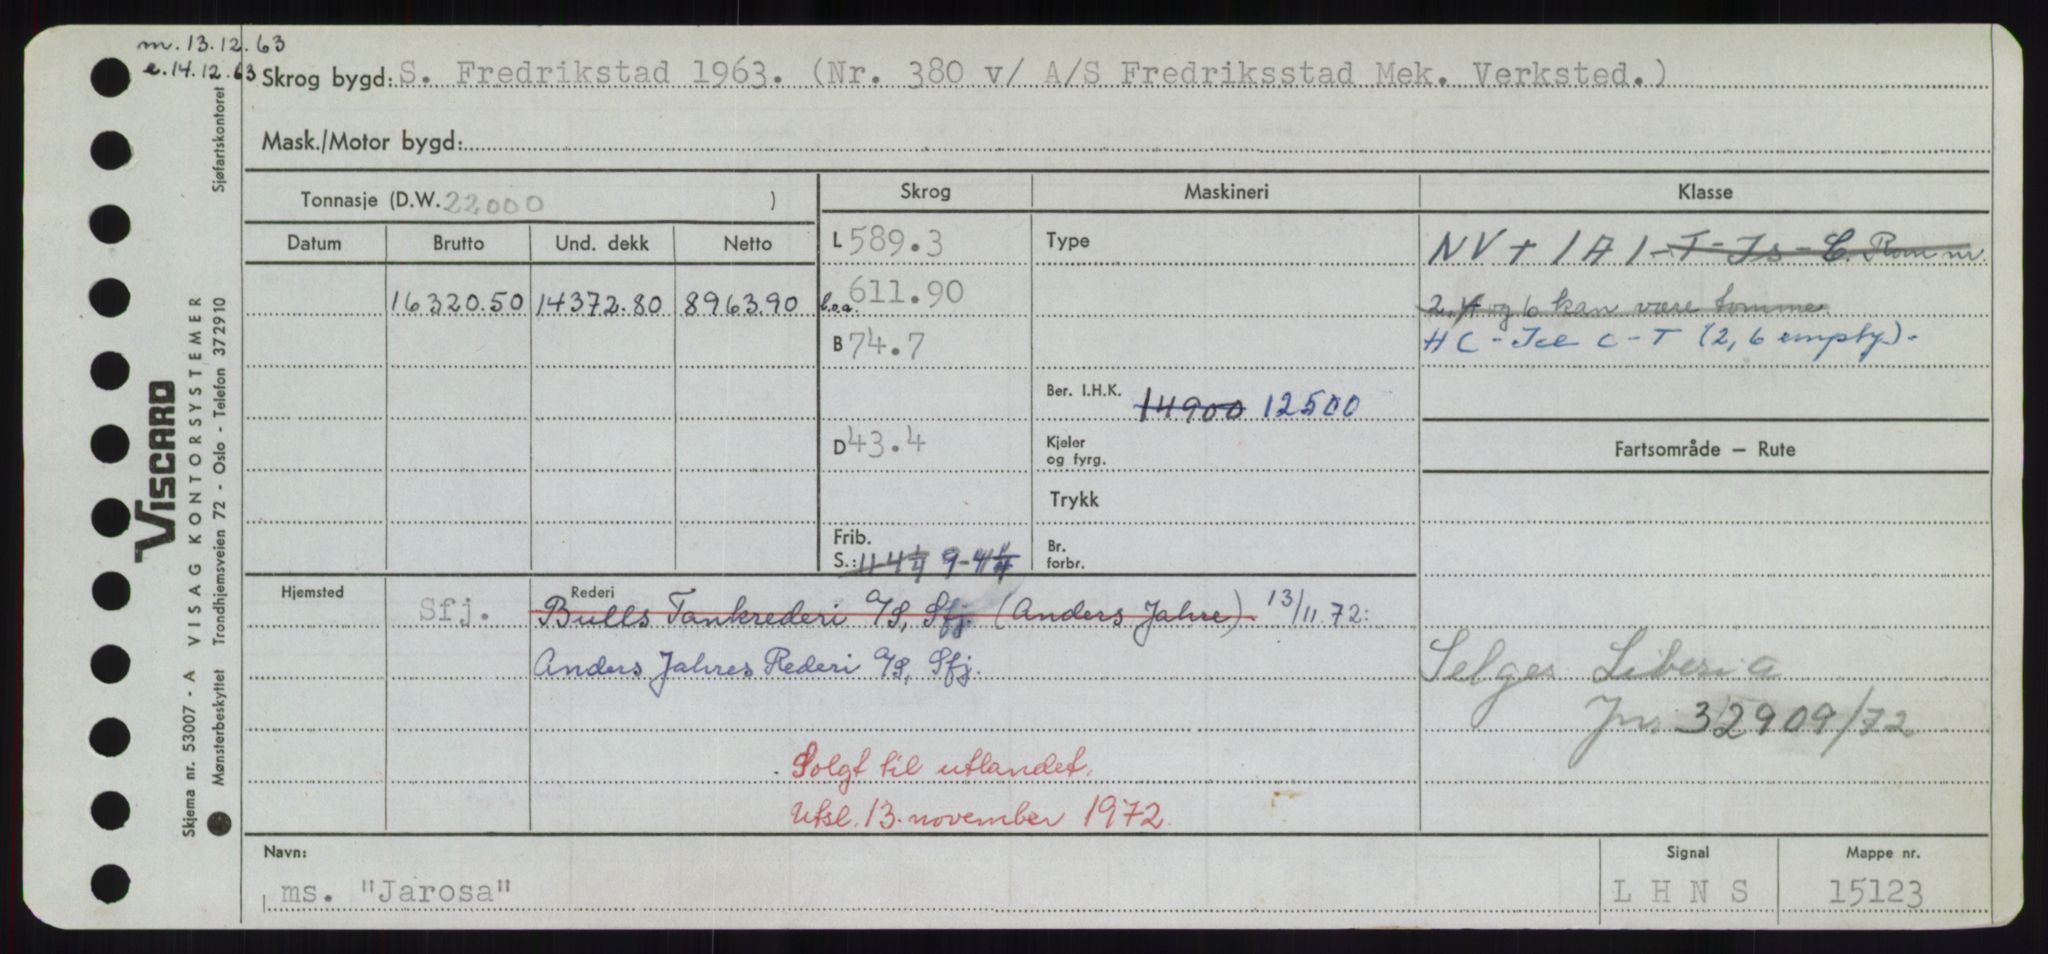 m. 13.12.63
e. 14.12.63
Skrog bygd: S. Fredrikstad 1963. (Nr. 380 v/ A/S Fredriksstad Mek. Verksted.)
Mask./Motor bygd:
Tonnasje (D.W. 22000 )
Skrog Maskineri Klasse
Datum Brutto Und. dekk Netto
L 589.3 Type NV + 1A1 - T - Is - C. Rom nr.
16320.50 14372.80 8963.90 l.o.a. 611.90 2.4 og 6 kan være tomme
B 74.7 HC - Ice C - T (2, 6 empty).
Ber. I.H.K. 14900 12500
D 43.4 Kjeler og fyrg. Fartsområde — Rute
Trykk
Frib. S.: 11-4¼ 9-4¼ Br. forbr.
Hjemsted Sfj. Rederi Bulls Tankrederi A/S, Sfj. (Anders Jahre) 13/11.72:
Anders Jahres Rederi A/S, Sfj. Selges Liberia
Jnr 32909/72
Solgt til utlandet.
Utsl. 13. november 1972.
Navn: Signal Mappe nr.
ms. "Jarosa" LHNS 15123
VISCARD
Skjema nr. 53007 - A VISAG KONTORSYSTEMER
Mønsterbeskyttet Trondhjemsveien 72 - Oslo - Telefon 372910 Sjøfartskontoret